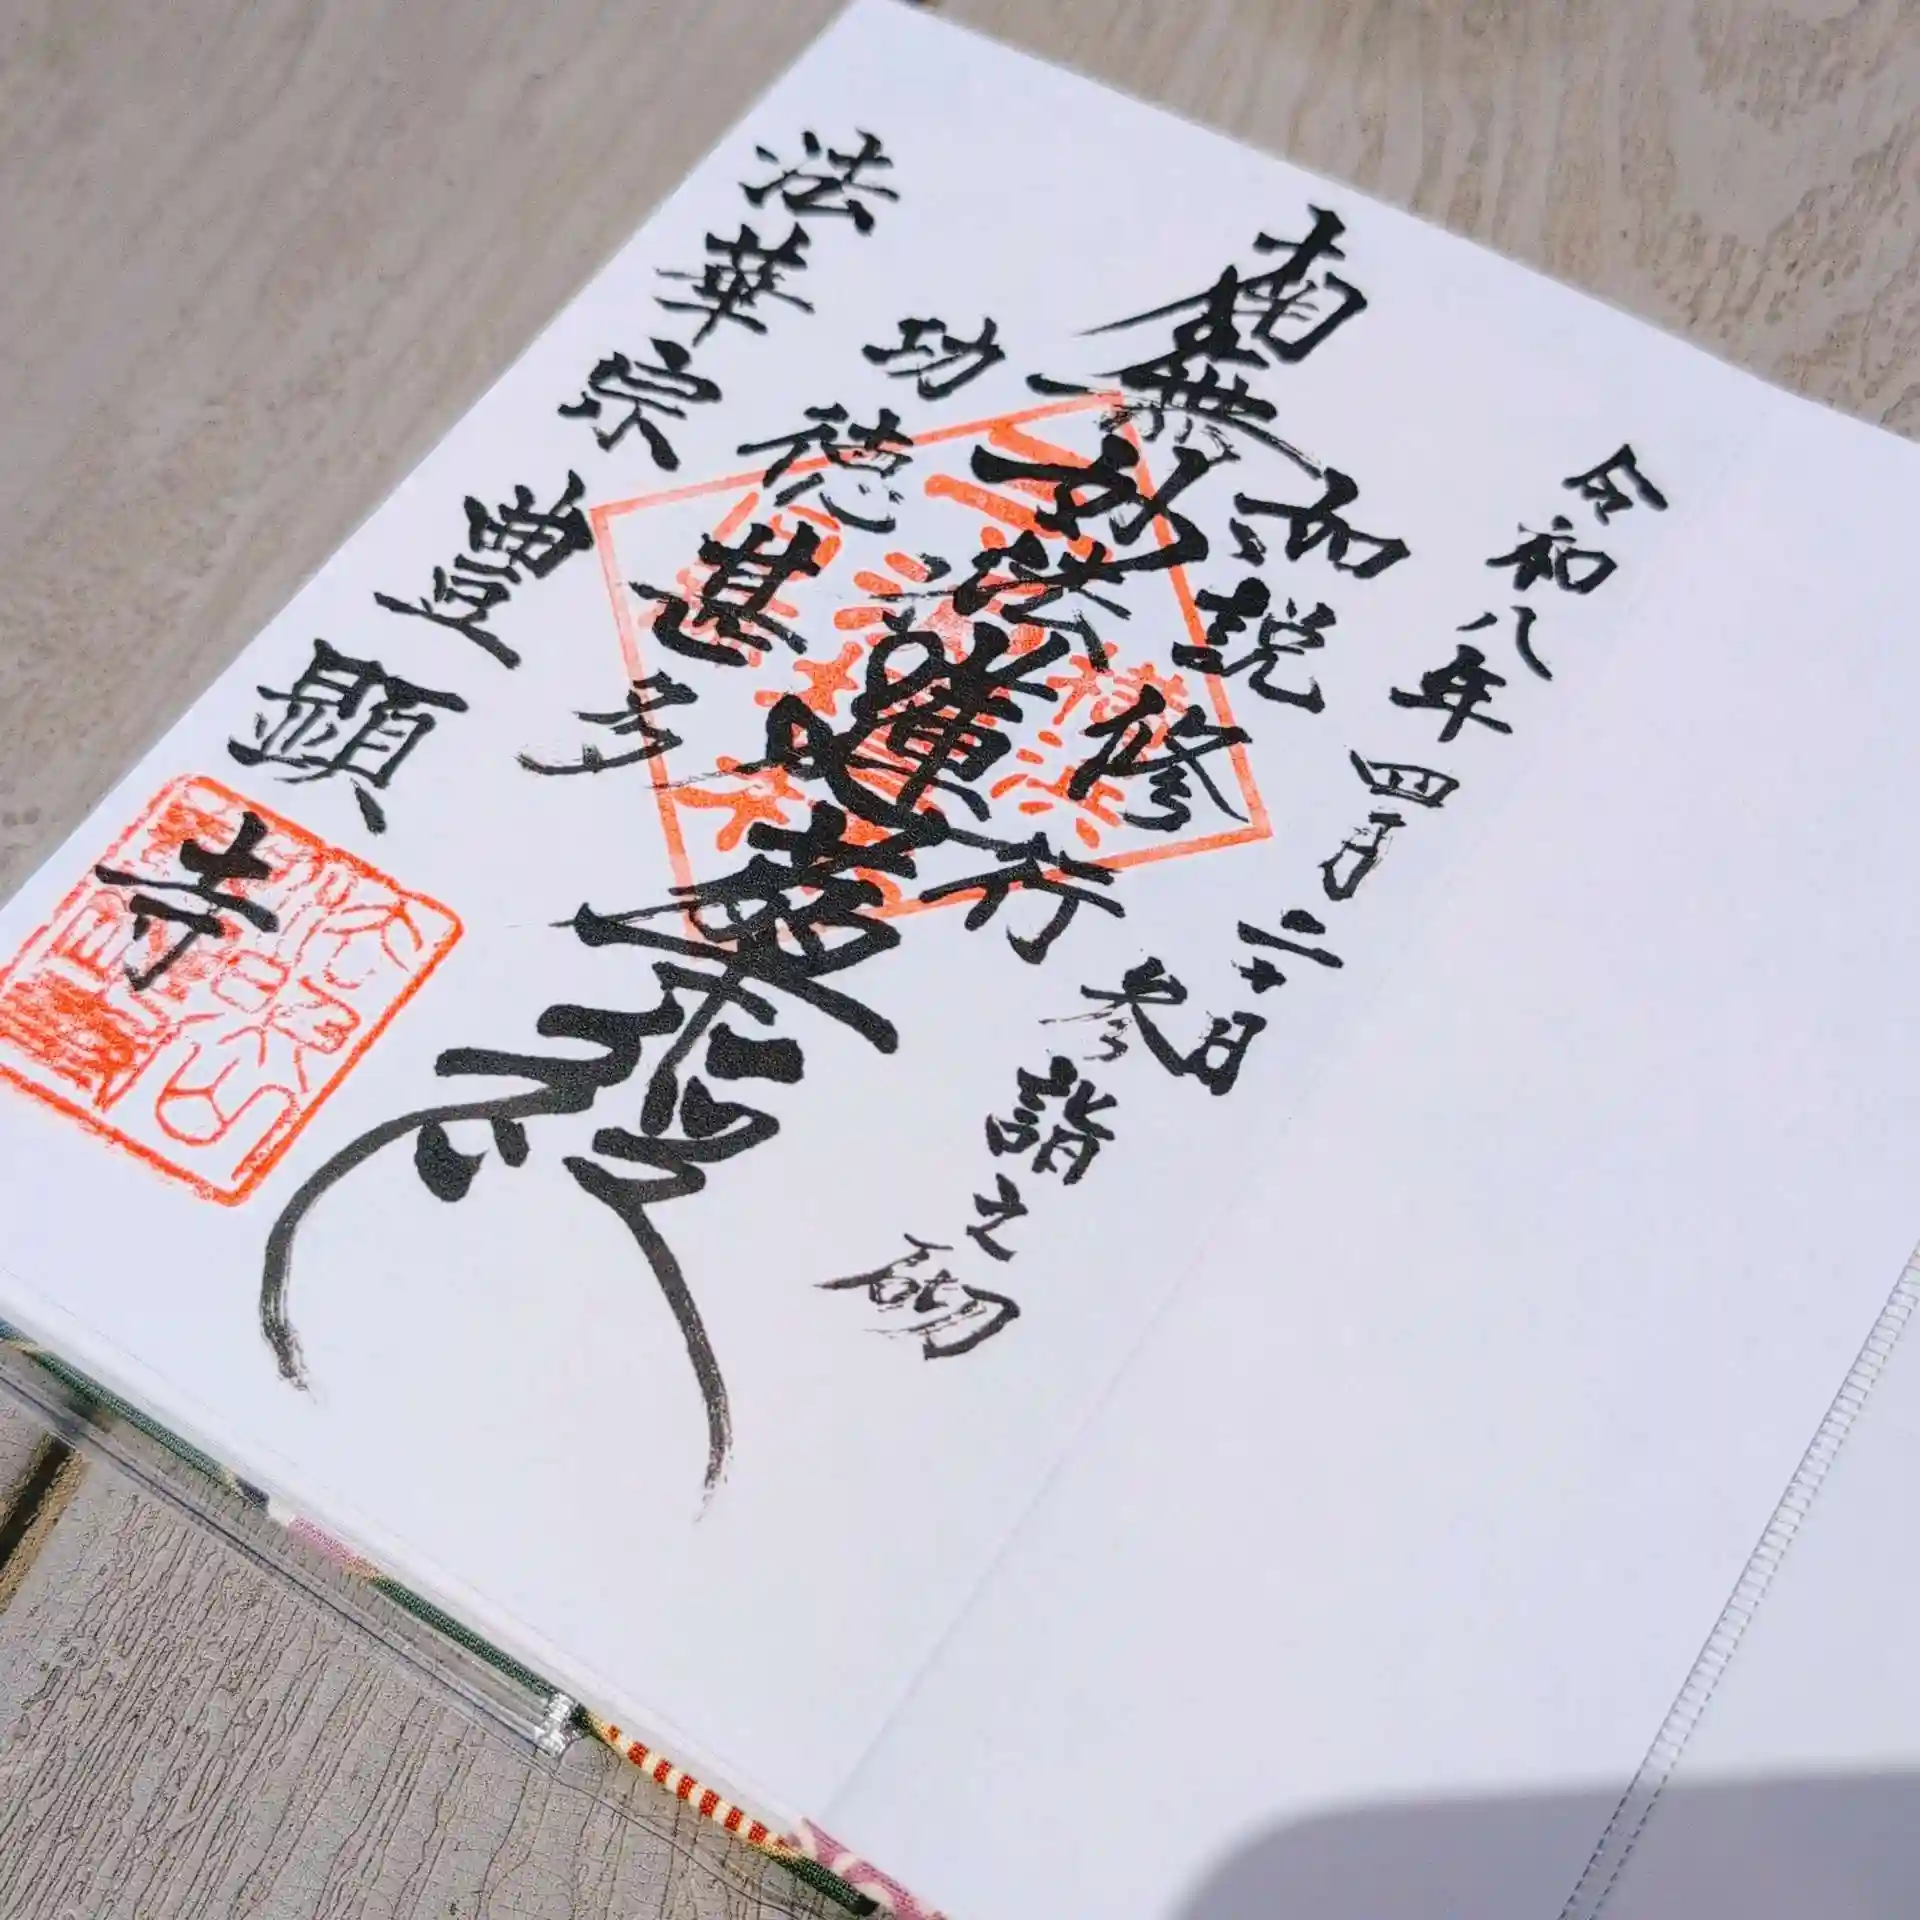 令和八年四月二十日
参詣之砌
如説修行
南無妙法蓮華経
功徳甚多
法華宗 豊顕寺